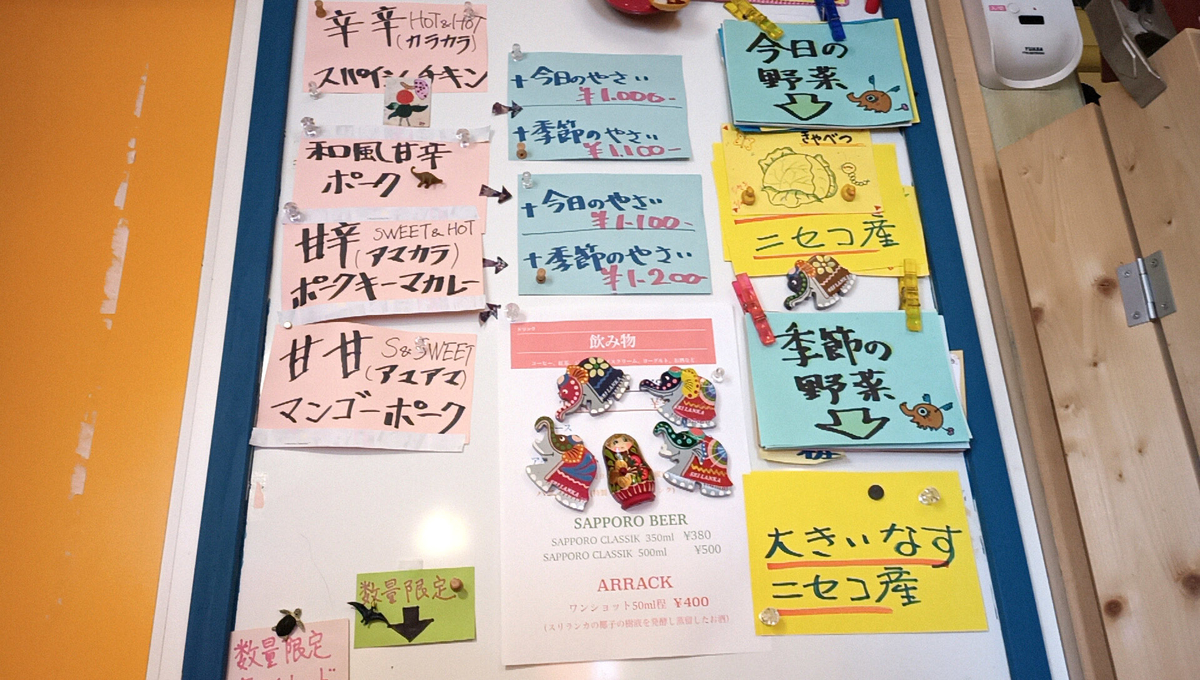 辛辛 HOT & HOT
(カラカラ)
スパイシーチキン
和風甘辛
ポーク
甘辛 SWEET & HOT
(アマカラ)
ポークキーマカレー
甘甘 S & SWEET
(アマアマ)
マンゴーポーク
数量限定
数量限定
+今日のやさい
¥1.000-
+季節のやさい
¥1,100-
+今日のやさい
¥1-100-
+季節のやさい
¥1-200-
飲み物
SRI LANKA
SRI LANKA
SRI LANKA
SAPPORO BEER
SAPPORO CLASSIK 350ml ¥380
SAPPORO CLASSIK 500ml ¥500
ARRACK
ワンショット50ml程 ¥400
(スリランカの椰子の樹液を発酵し蒸留したお酒)
今日の
野菜
きゃべつ
ニセコ産
SRI LANKA
季節の
野菜
大きいなす
ニセコ産